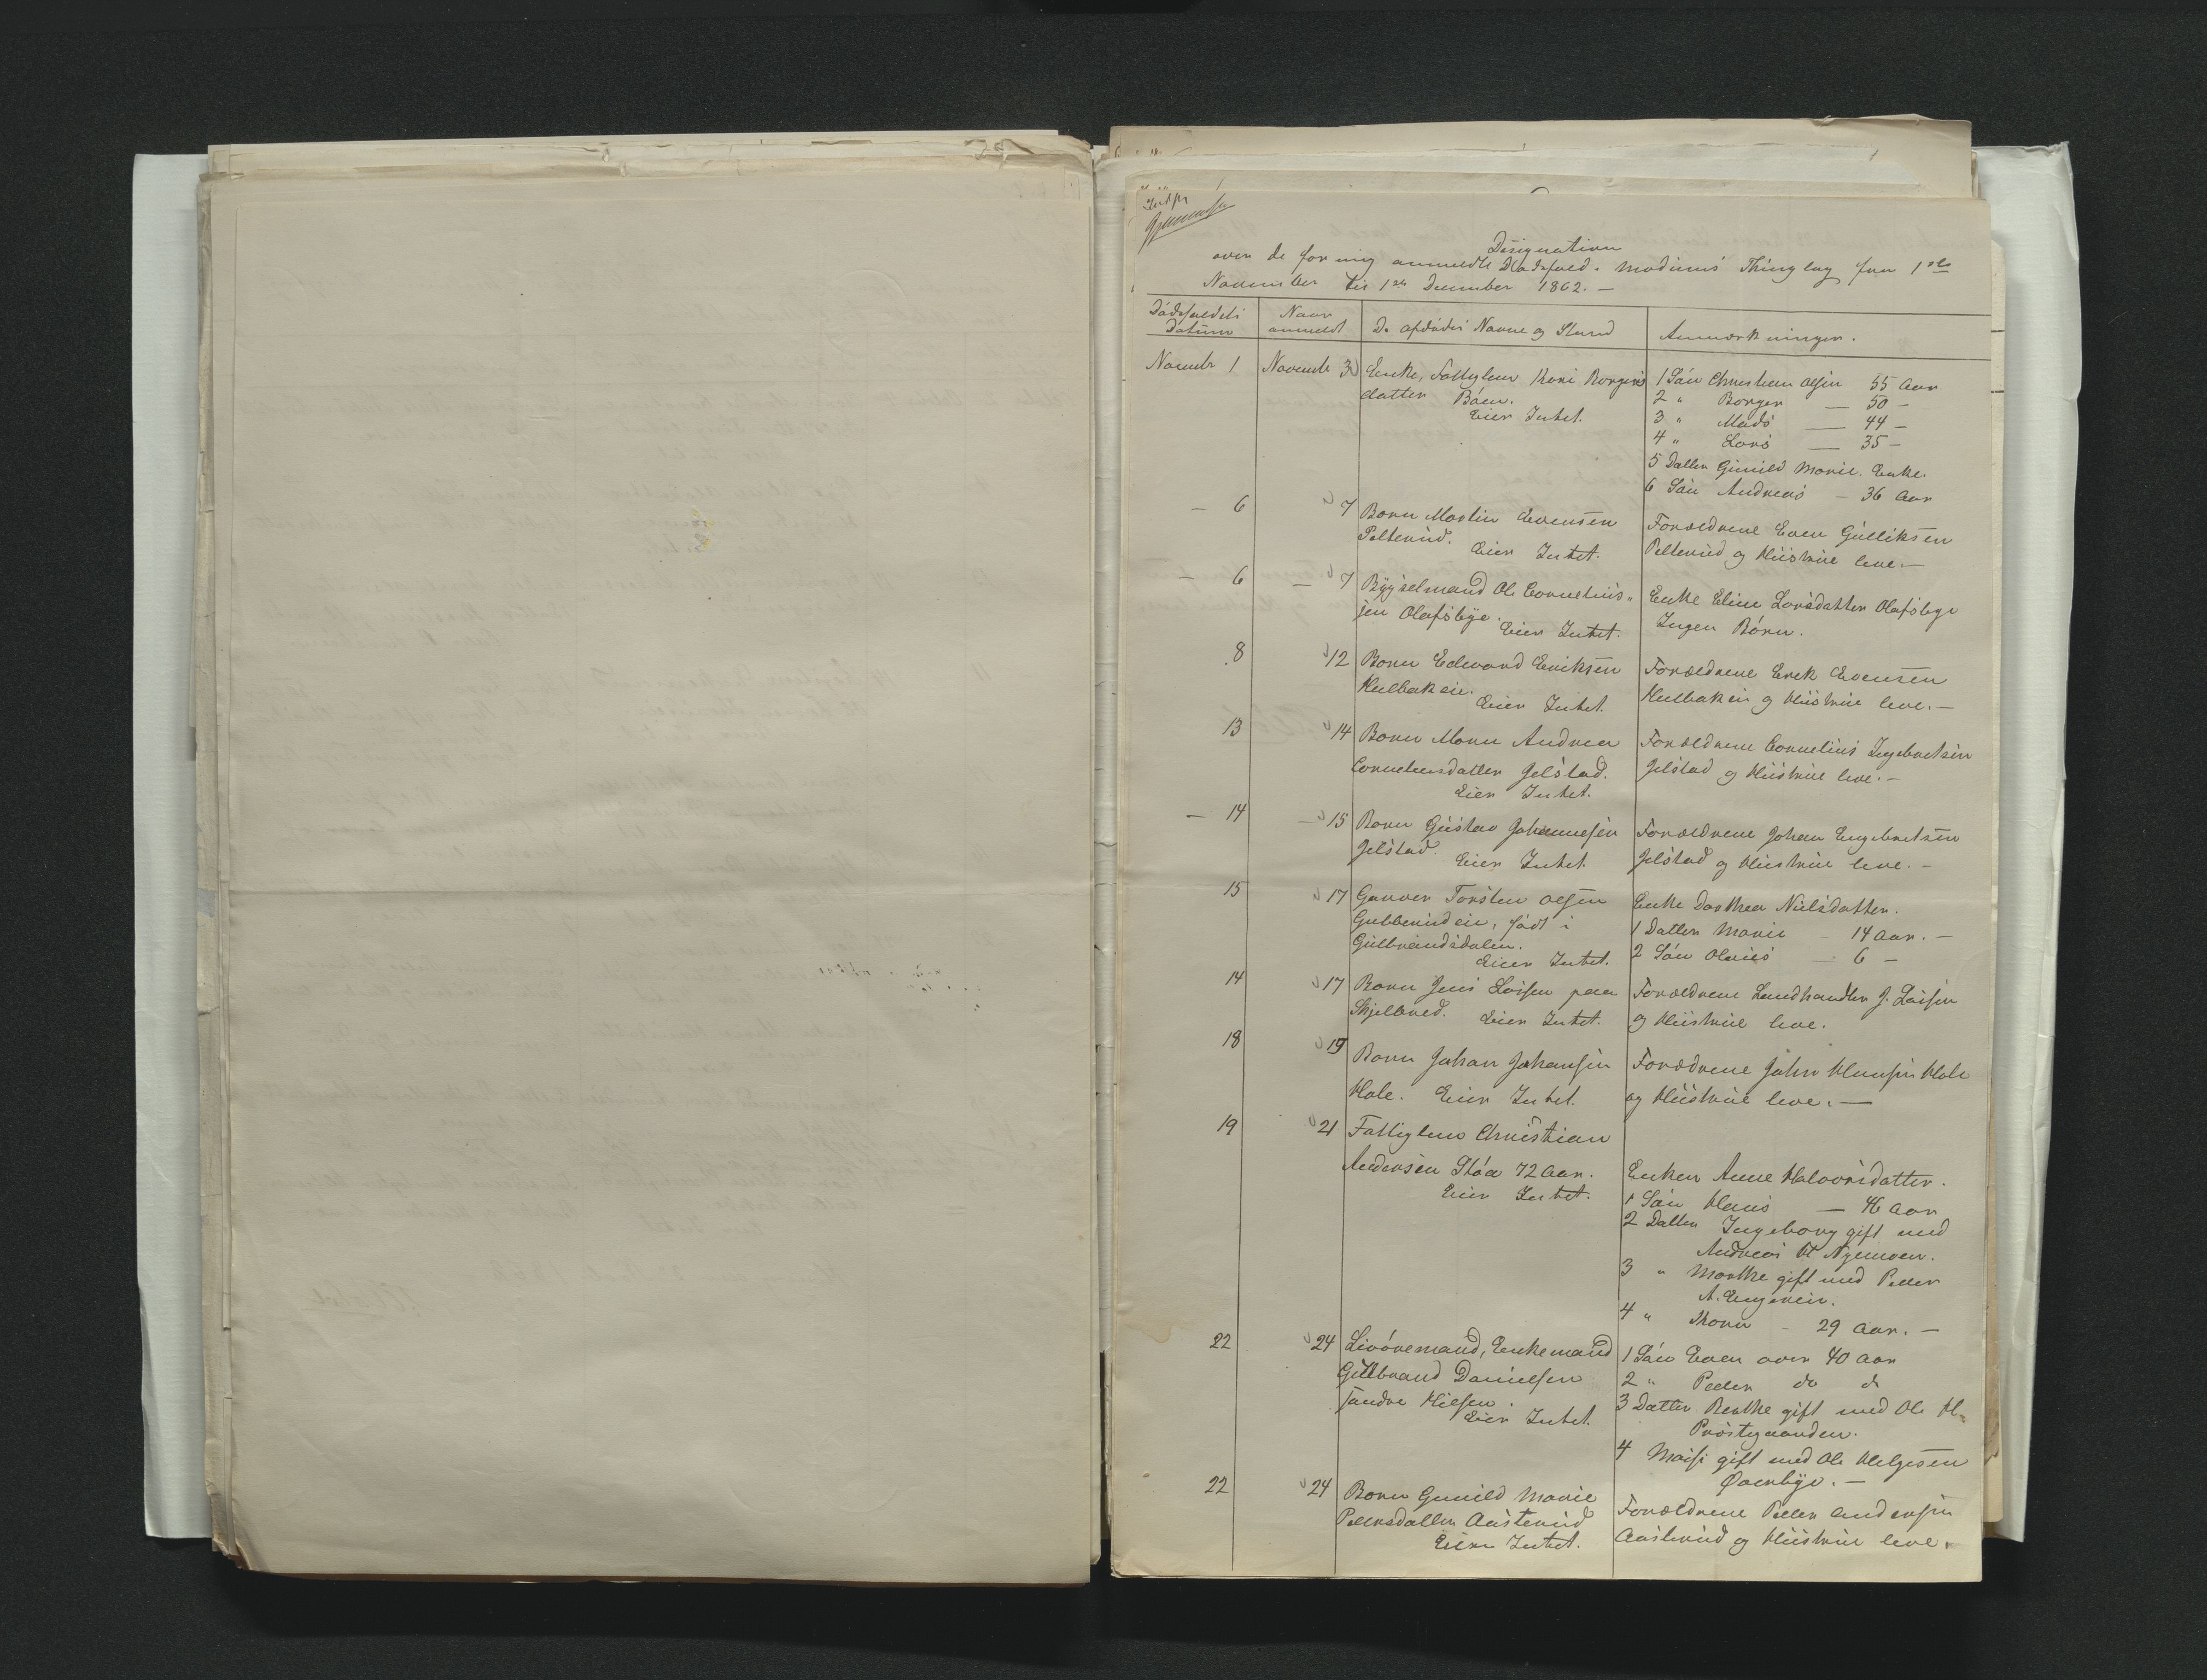 Designation
over de for mig anmeldte Dødsfald i Modums Thinglag fra 1ste
November til 1ste December 1862. —
Dødsfaldets Datum | Naar anmeldt | De afdødes Navne og Stand | Anmærkninger.
Novembr 1 | Novembr 3 | Enke, Fattiglem Kari Borgers | 1 Søn Christian Olsen 55 Aar
datter Båen. | 2 " Borger — 50 —
Eier Intet. | 3 " Mads — 44 —
4 " Lars — 35 —
5 Datter Gunild Marie. Enke.
6 Søn Andreas — 36 Aar
— 6 | 7 | Barn Martin Evensen | Forældrene Even Gulliksen
Pelterud. Eier Intet. | Pelterud og Hustrue leve. —
— 6 | — 7 | Bygselmand Ole Cornelius" | Enke Eline Larsdatter Olafsbye
sen Olafsbye. Eier Intet. | Ingen Børn.
8 | 12 | Barn Edvard Eriksen | Forældrene Erik Evensen
Hulbakeie. Eier Intet. | Hulbakeie og Hustrue leve. —
13 | 14 | Barn Maren Andrea | Forældrene Cornelius Ingebretsen
Corneliusdatter Jelstad. | Jelstad og Hustrue leve. —
Eier Intet.
— 14 | — 15 | Barn Gustav Johannesen | Forældrene Johan Engebretsen
Jelstad. Eier Intet. | Jelstad og Hustrue leve. —
15 | 17 | Garver Torsten Olsen | Enke Dorthea Nielsdatter.
Gubberudeie, født i | 1 Datter Marie — 14 Aar. —
Gulbrandsdalen. | 2 Søn Olaus — 6 —
Eier Intet.
14 | 17 | Barn Jens Loisen paa | Forældrene Landhandler J. Loisen
Skjelbred. Eier Intet. | og Hustrue leve.
18 | 19 | Barn Johan Johansen | Forældrene Johan Hansen Hole
Hole. Eier Intet. | og Hustrue leve. —
19 | 21 | Fattiglem Christian
Andersen Støa 72 Aar. | Enken Anne Halvorsdatter.
Eier Intet. | 1 Søn Hans — 46 Aar
2 Datter Ingeborg gift med
Andreas H Nyemoen.
3 " Marthe gift med Peder
A.
4 " Maren — 29 Aar. —
22 | 24 | Livøremand, Enkemand | 1 Søn Even over 40 Aar
Gulbrand Danielsen | 2 " Peder do do
søndre Hilsen. | 3 Datter Berthe gift med Ole H.
Eier Intet. | Præstegaarden.
4 gift med Ole Helgesen
Øverbye. —
22 | 24 | Barn Gunild Marie | Forældrene Peder Andersen
Pedersdatter Aasterud | Aasterud og Hustrue leve.
Eier Intet.